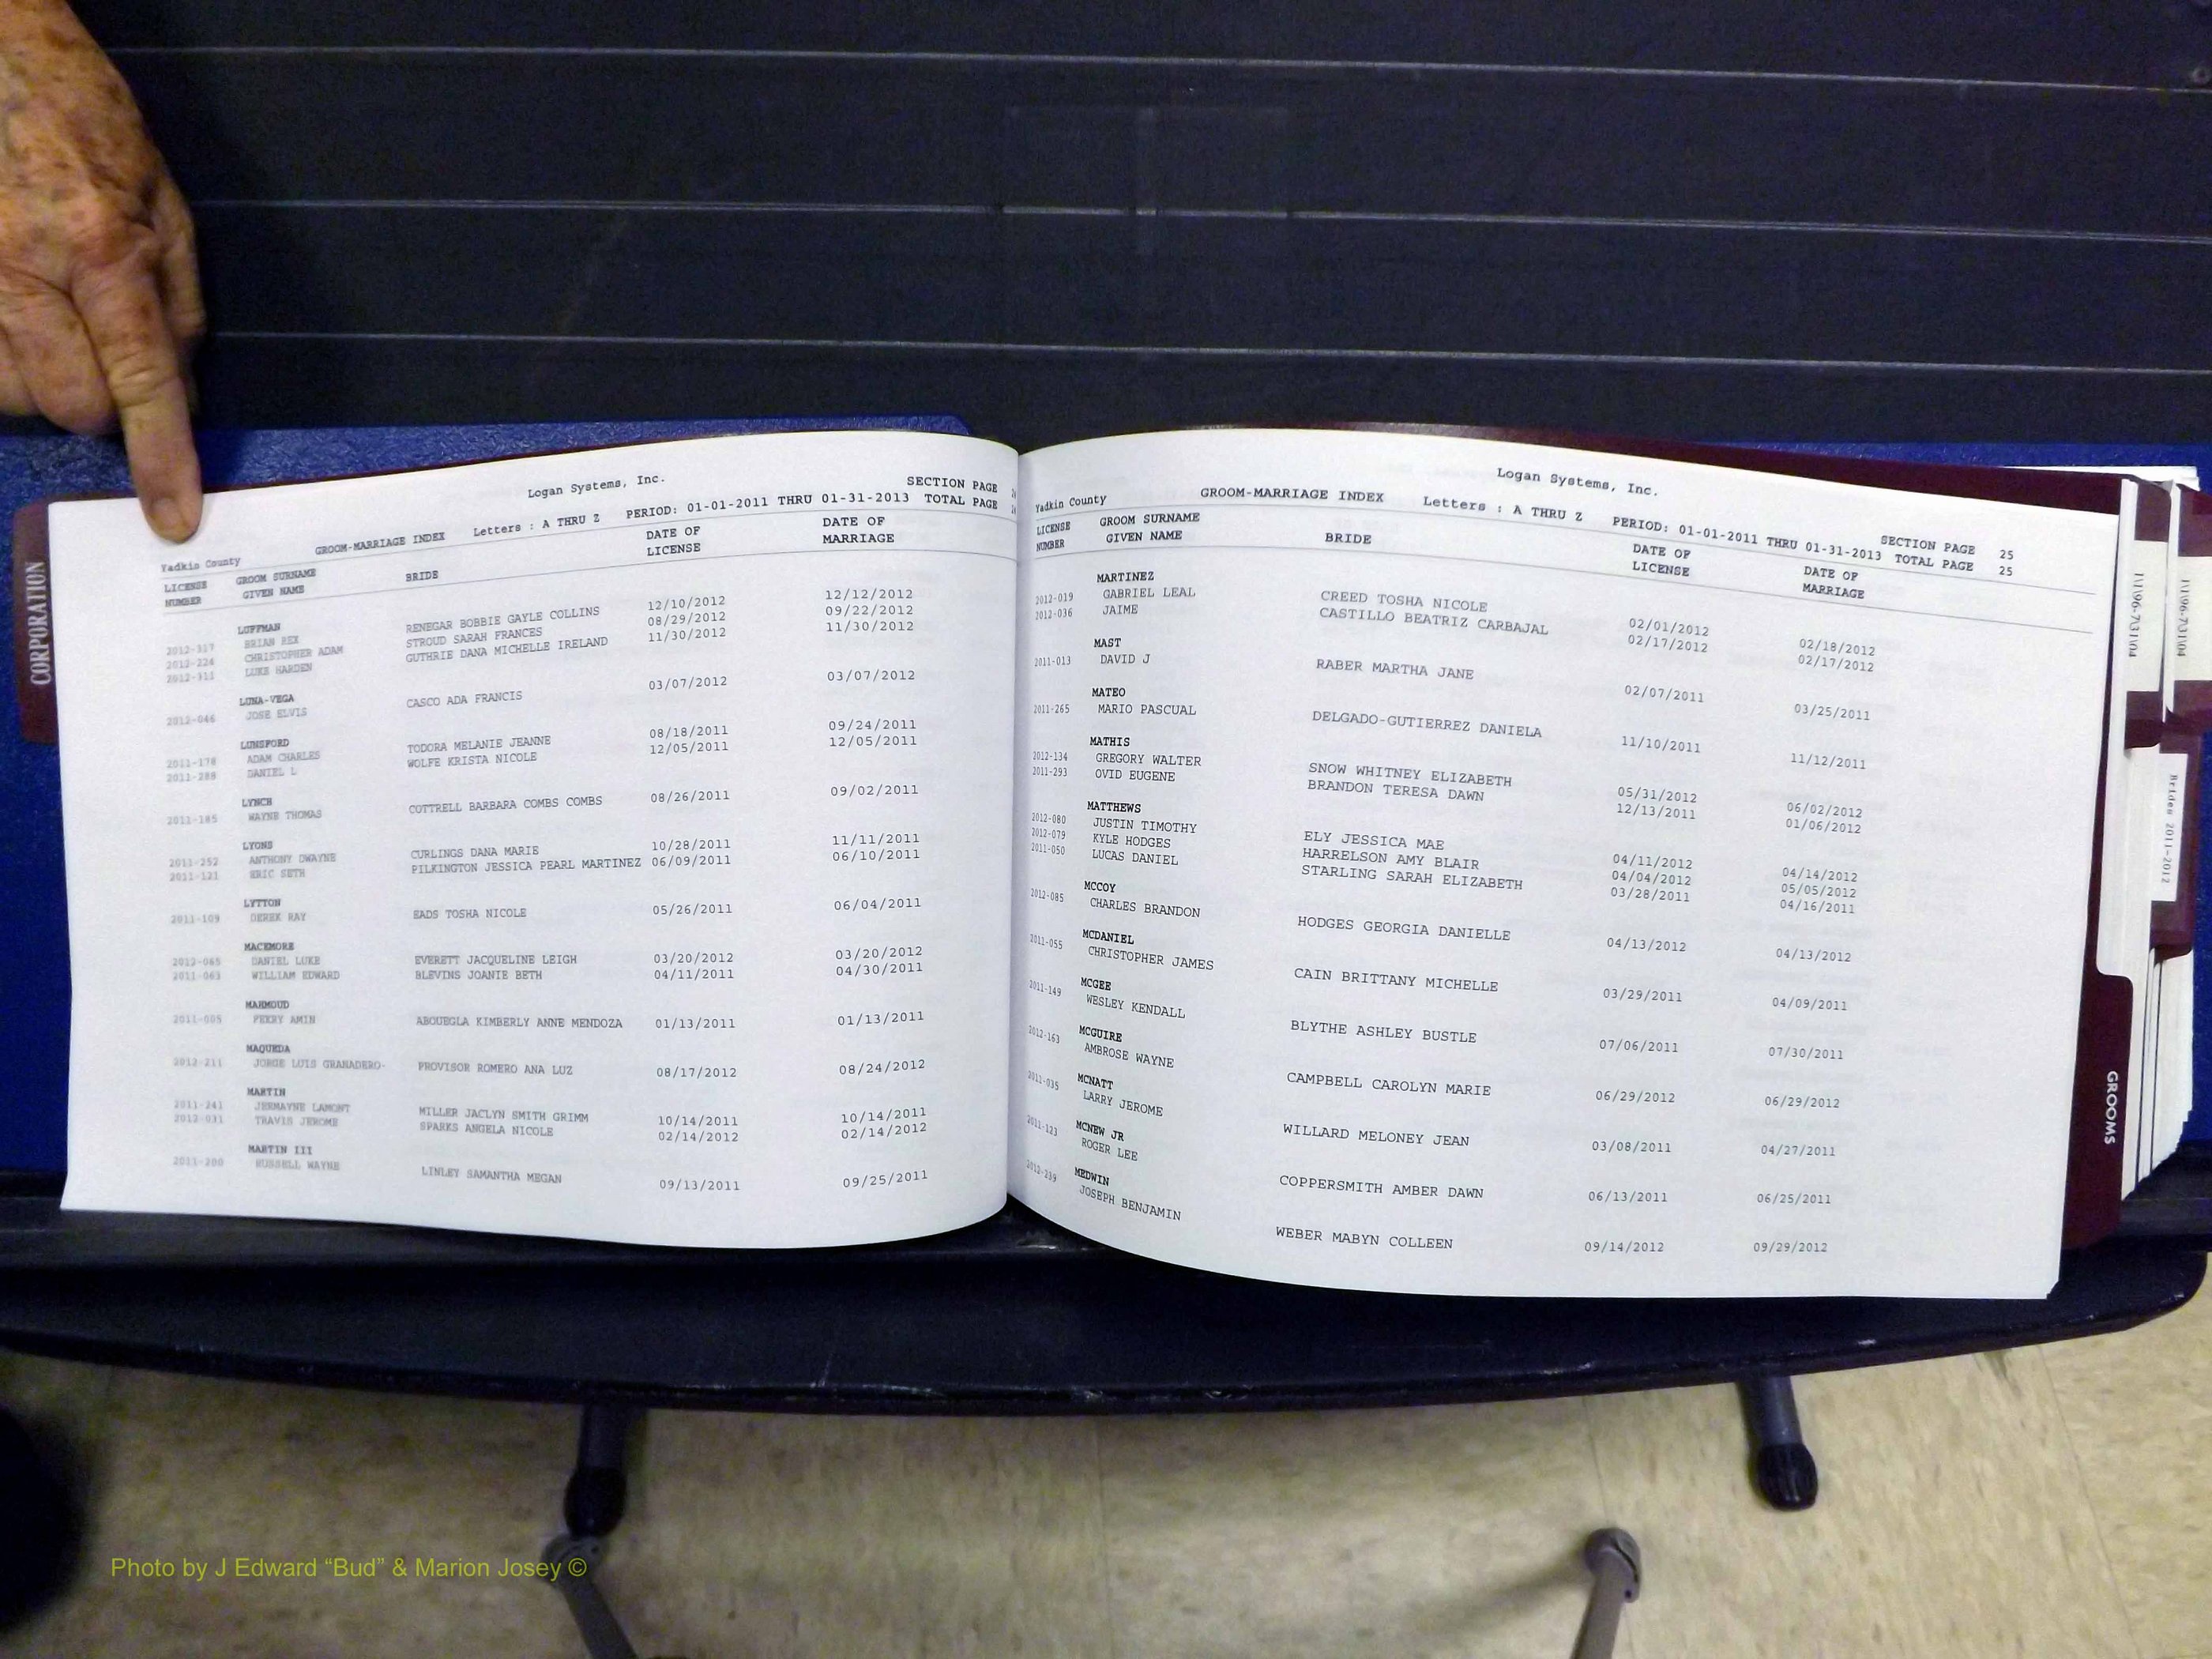 CORPORATION
Logan Systems, Inc.
SECTION PAGE
Yadkin County GROOM-MARRIAGE INDEX Letters : A THRU Z PERIOD: 01-01-2011 THRU 01-31-2013 TOTAL PAGE
LICENSE NUMBER GROOM SURNAME GIVEN NAME BRIDE DATE OF LICENSE DATE OF MARRIAGE
LUFFMAN
2012-317 BRIAN REX RENEGAR BOBBIE GAYLE COLLINS 12/10/2012 12/12/2012
2012-224 CHRISTOPHER ADAM STROUD SARAH FRANCES 08/29/2012 09/22/2012
2012-311 LUKE HARDEN GUTHRIE DANA MICHELLE IRELAND 11/30/2012 11/30/2012
LUNA-VEGA
2012-046 JOSE ELVIS CASCO ADA FRANCIS 03/07/2012 03/07/2012
LUNSFORD
2011-178 ADAM CHARLES TODORA MELANIE JEANNE 08/18/2011 09/24/2011
2011-288 DANIEL L WOLFE KRISTA NICOLE 12/05/2011 12/05/2011
LYNCH
2011-185 WAYNE THOMAS COTTRELL BARBARA COMBS COMBS 08/26/2011 09/02/2011
LYONS
2011-252 ANTHONY DWAYNE CURLINGS DANA MARIE 10/28/2011 11/11/2011
2011-121 ERIC SETH PILKINGTON JESSICA PEARL MARTINEZ 06/09/2011 06/10/2011
LYTTON
2011-109 DEREK RAY EADS TOSHA NICOLE 05/26/2011 06/04/2011
MACEMORE
2012-065 DANIEL LUKE EVERETT JACQUELINE LEIGH 03/20/2012 03/20/2012
2011-063 WILLIAM EDWARD BLEVINS JOANIE BETH 04/11/2011 04/30/2011
MAHMOUD
2011-005 FEKRY AMIN ABOUEGLA KIMBERLY ANNE MENDOZA 01/13/2011 01/13/2011
MAQUEDA
2012-211 JORGE LUIS GRANADERO- PROVISOR ROMERO ANA LUZ 08/17/2012 08/24/2012
MARTIN
2011-241 JERMAYNE LAMONT MILLER JACLYN SMITH GRIMM 10/14/2011 10/14/2011
2012-031 TRAVIS JEROME SPARKS ANGELA NICOLE 02/14/2012 02/14/2012
MARTIN III
2011-200 RUSSELL WAYNE LINLEY SAMANTHA MEGAN 09/13/2011 09/25/2011
Logan Systems, Inc.
SECTION PAGE 25
Yadkin County GROOM-MARRIAGE INDEX Letters : A THRU Z PERIOD: 01-01-2011 THRU 01-31-2013 TOTAL PAGE 25
LICENSE NUMBER GROOM SURNAME GIVEN NAME BRIDE DATE OF LICENSE DATE OF MARRIAGE
MARTINEZ
2012-019 GABRIEL LEAL CREED TOSHA NICOLE 02/01/2012 02/18/2012
2012-036 JAIME CASTILLO BEATRIZ CARBAJAL 02/17/2012 02/17/2012
MAST
2011-013 DAVID J RABER MARTHA JANE 02/07/2011 03/25/2011
MATEO
2011-265 MARIO PASCUAL DELGADO-GUTIERREZ DANIELA 11/10/2011 11/12/2011
MATHIS
2012-134 GREGORY WALTER SNOW WHITNEY ELIZABETH 05/31/2012 06/02/2012
2011-293 OVID EUGENE BRANDON TERESA DAWN 12/13/2011 01/06/2012
MATTHEWS
2012-080 JUSTIN TIMOTHY ELY JESSICA MAE 04/11/2012 04/14/2012
2012-079 KYLE HODGES HARRELSON AMY BLAIR 04/04/2012 05/05/2012
2011-050 LUCAS DANIEL STARLING SARAH ELIZABETH 03/28/2011 04/16/2011
MCCOY
2012-085 CHARLES BRANDON HODGES GEORGIA DANIELLE 04/13/2012 04/13/2012
MCDANIEL
2011-055 CHRISTOPHER JAMES CAIN BRITTANY MICHELLE 03/29/2011 04/09/2011
MCGEE
2011-149 WESLEY KENDALL BLYTHE ASHLEY BUSTLE 07/06/2011 07/30/2011
MCGUIRE
2012-163 AMBROSE WAYNE CAMPBELL CAROLYN MARIE 06/29/2012 06/29/2012
MCNATT
2011-035 LARRY JEROME WILLARD MELONEY JEAN 03/08/2011 04/27/2011
MCNEW JR
2011-123 ROGER LEE COPPERSMITH AMBER DAWN 06/13/2011 06/25/2011
MEDWIN
2012-239 JOSEPH BENJAMIN WEBER MABYN COLLEEN 09/14/2012 09/29/2012
1\1\96-7\31\04
1\1\96-7\31\04
Brides 2011-2012
GROOMS
Photo by J Edward “Bud” & Marion Josey ©